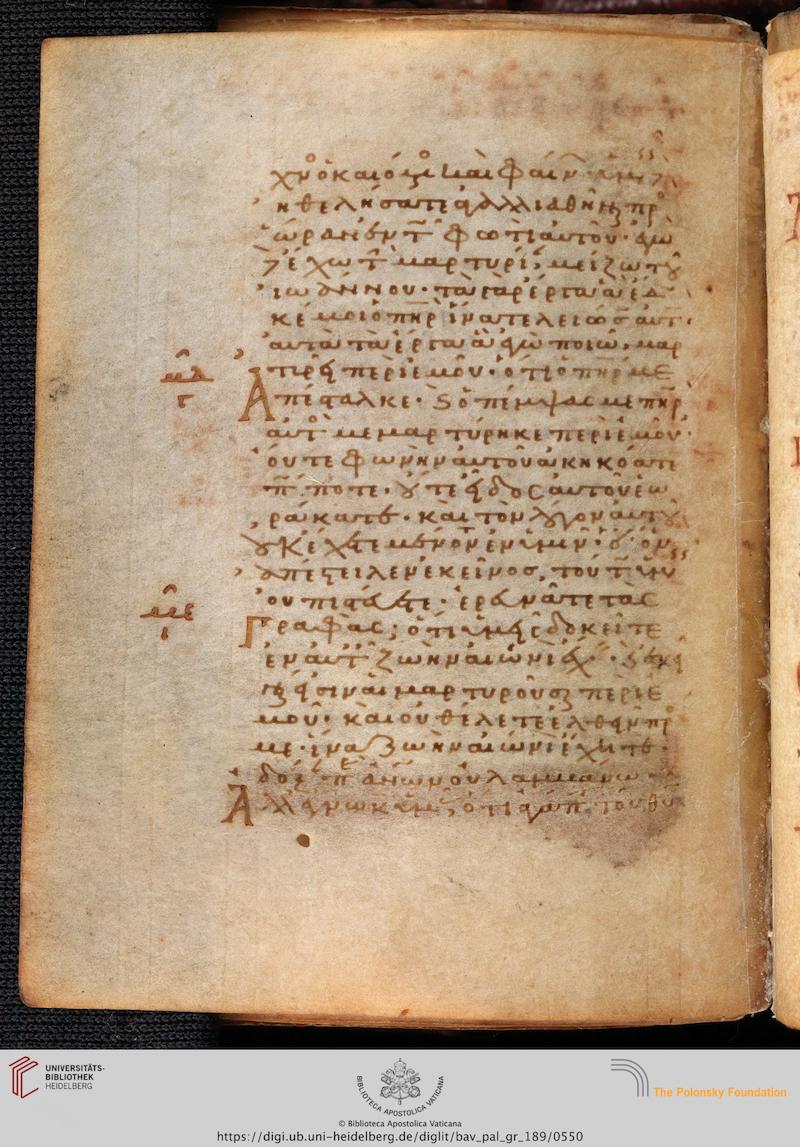 χνὸς καιό μενος καὶ φαίνων
ἠθελήσατε ἀγαλλιαθῆναι πρὸς
ὥραν ἐν τῶ φωτὶ αὐτοῦ· ἐγὼ
δὲ ἔχω τὴν μαρτυρίαν μείζω τοῦ
ἰωάννου· τὰ γὰρ ἔργα ἃ ἔδω
κέ μοι ὁ πηρ ἵνα τελειώσω αὐτ
αὐτὰ τὰ ἔργα ἃ ἐγὼ ποιῶ, μαρ
τυρεῖ περὶ ἐμοῦ· ὅτι ὁ πηρ με
Ἀπέσταλκε· καὶ ὁ πέμψας με πηρ
αὐτὸς μεμαρτύρηκε περὶ ἐμοῦ·
οὔτε φωνὴν αὐτοῦ ἀκηκόατε
πώποτε· οὔτε εἶδος αὐτοῦ ἑω
ράκατε· καὶ τὸν λόγον αὐτοῦ
οὐκ ἔχετε μένον ἐν ὑμῖν· ὅτι ὃν
ἀπέστειλεν ἐκεῖνος, τούτω ὑμεῖς
οὐ πιστεύετε· ἐρευνᾶτε τὰς
Γραφάς; ὅτι ὑμεῖς δοκεῖτε
ἐν αὐταῖς ζωὴν αἰώνιον ἔχειν·
εἰσιν αἱ μαρτυροῦσαι περὶ ἐ
μοῦ· καὶ οὐ θέλετε ἐλθεῖν πρός
με· ἵνα ζωὴν αἰώνιον ἔχητε·
δόξαν παρὰ ἀνων οὐ λαμβάνω
Ἀλλ' ἔγνωκα ὑμᾶς, ὅτι
UNIVERSITÄTS-
BIBLIOTHEK
HEIDELBERG
BIBLIOTECA APOSTOLICA VATICANA
The Polonsky Foundation
© Biblioteca Apostolica Vaticana
https://digi.ub.uni-heidelberg.de/diglit/bav_pal_gr_189/0550